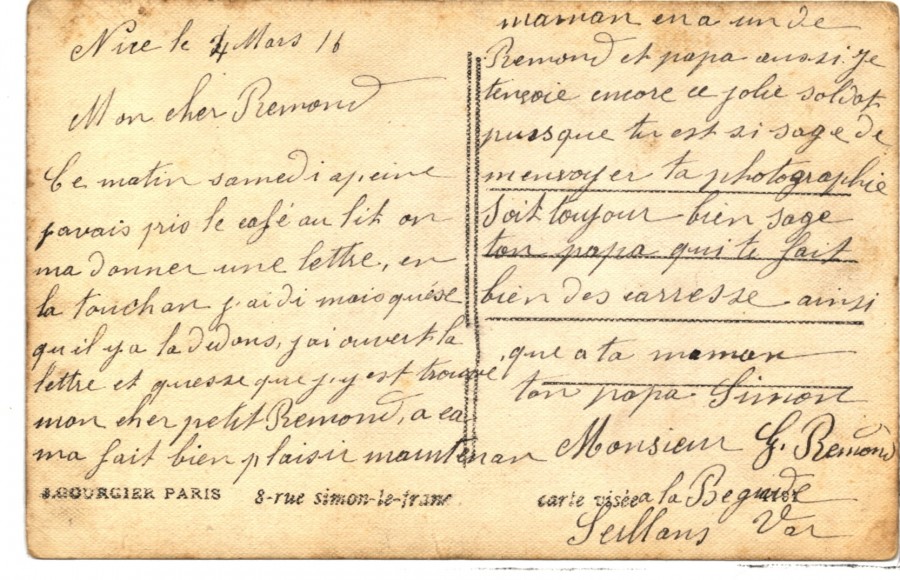 Nice le 4 Mars 16
Mon cher Remond
Ce matin samedi apeine
javais pris le café au lit on
ma donner une lettre, en
la touchan j'aidi mais quése
qu'il y a la dedans, j'ai ouvert la
lettre et quesse que j'y est trouve
mon cher petit Remond, a ca
ma fait bien plaisir maintenan
maman en a un de
Remond et papa aussi je
tenvoie encore ce jolie soldat
puisque tu est si sage de
menvoyer ta photographie
Soit toujour bien sage
ton papa qui te fait
bien des carresse ainsi
que a ta maman
ton papa Simon
Monsieur G. Remond
a la Begude
Seillans Var
J.GOURGIER PARIS 8-rue simon-le-franc carte visée